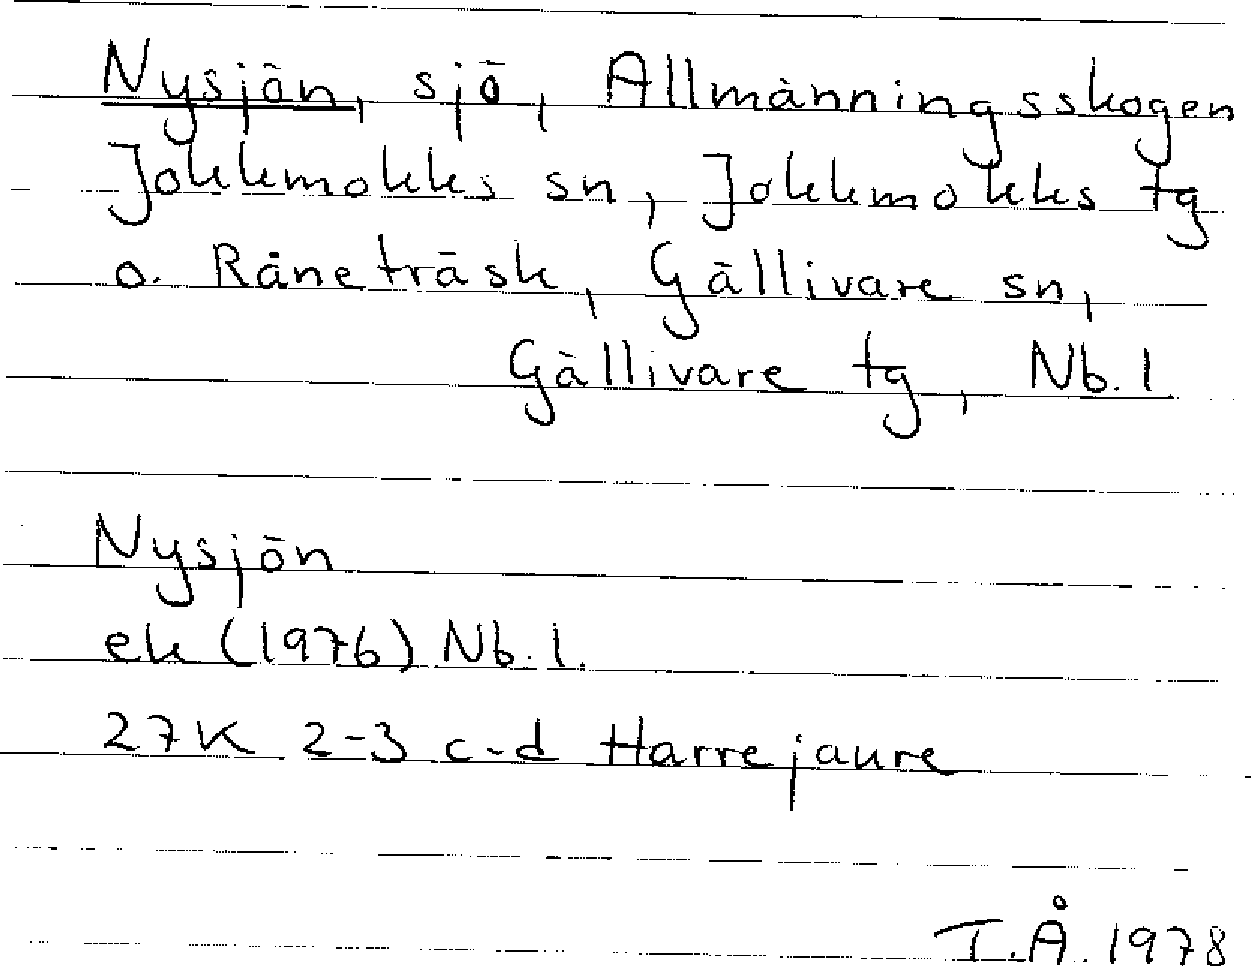 Nysjön, sjö, Allmänningsskogen
Jokkmokks sn, Jokkmokks tg
o. Råneträsk, Gällivare sn,
Gällivare tg, Nb. l
Nysjön
ek (1976) Nb. l.
27K 2-3 c-d Harrejaure
T.Å. 1978